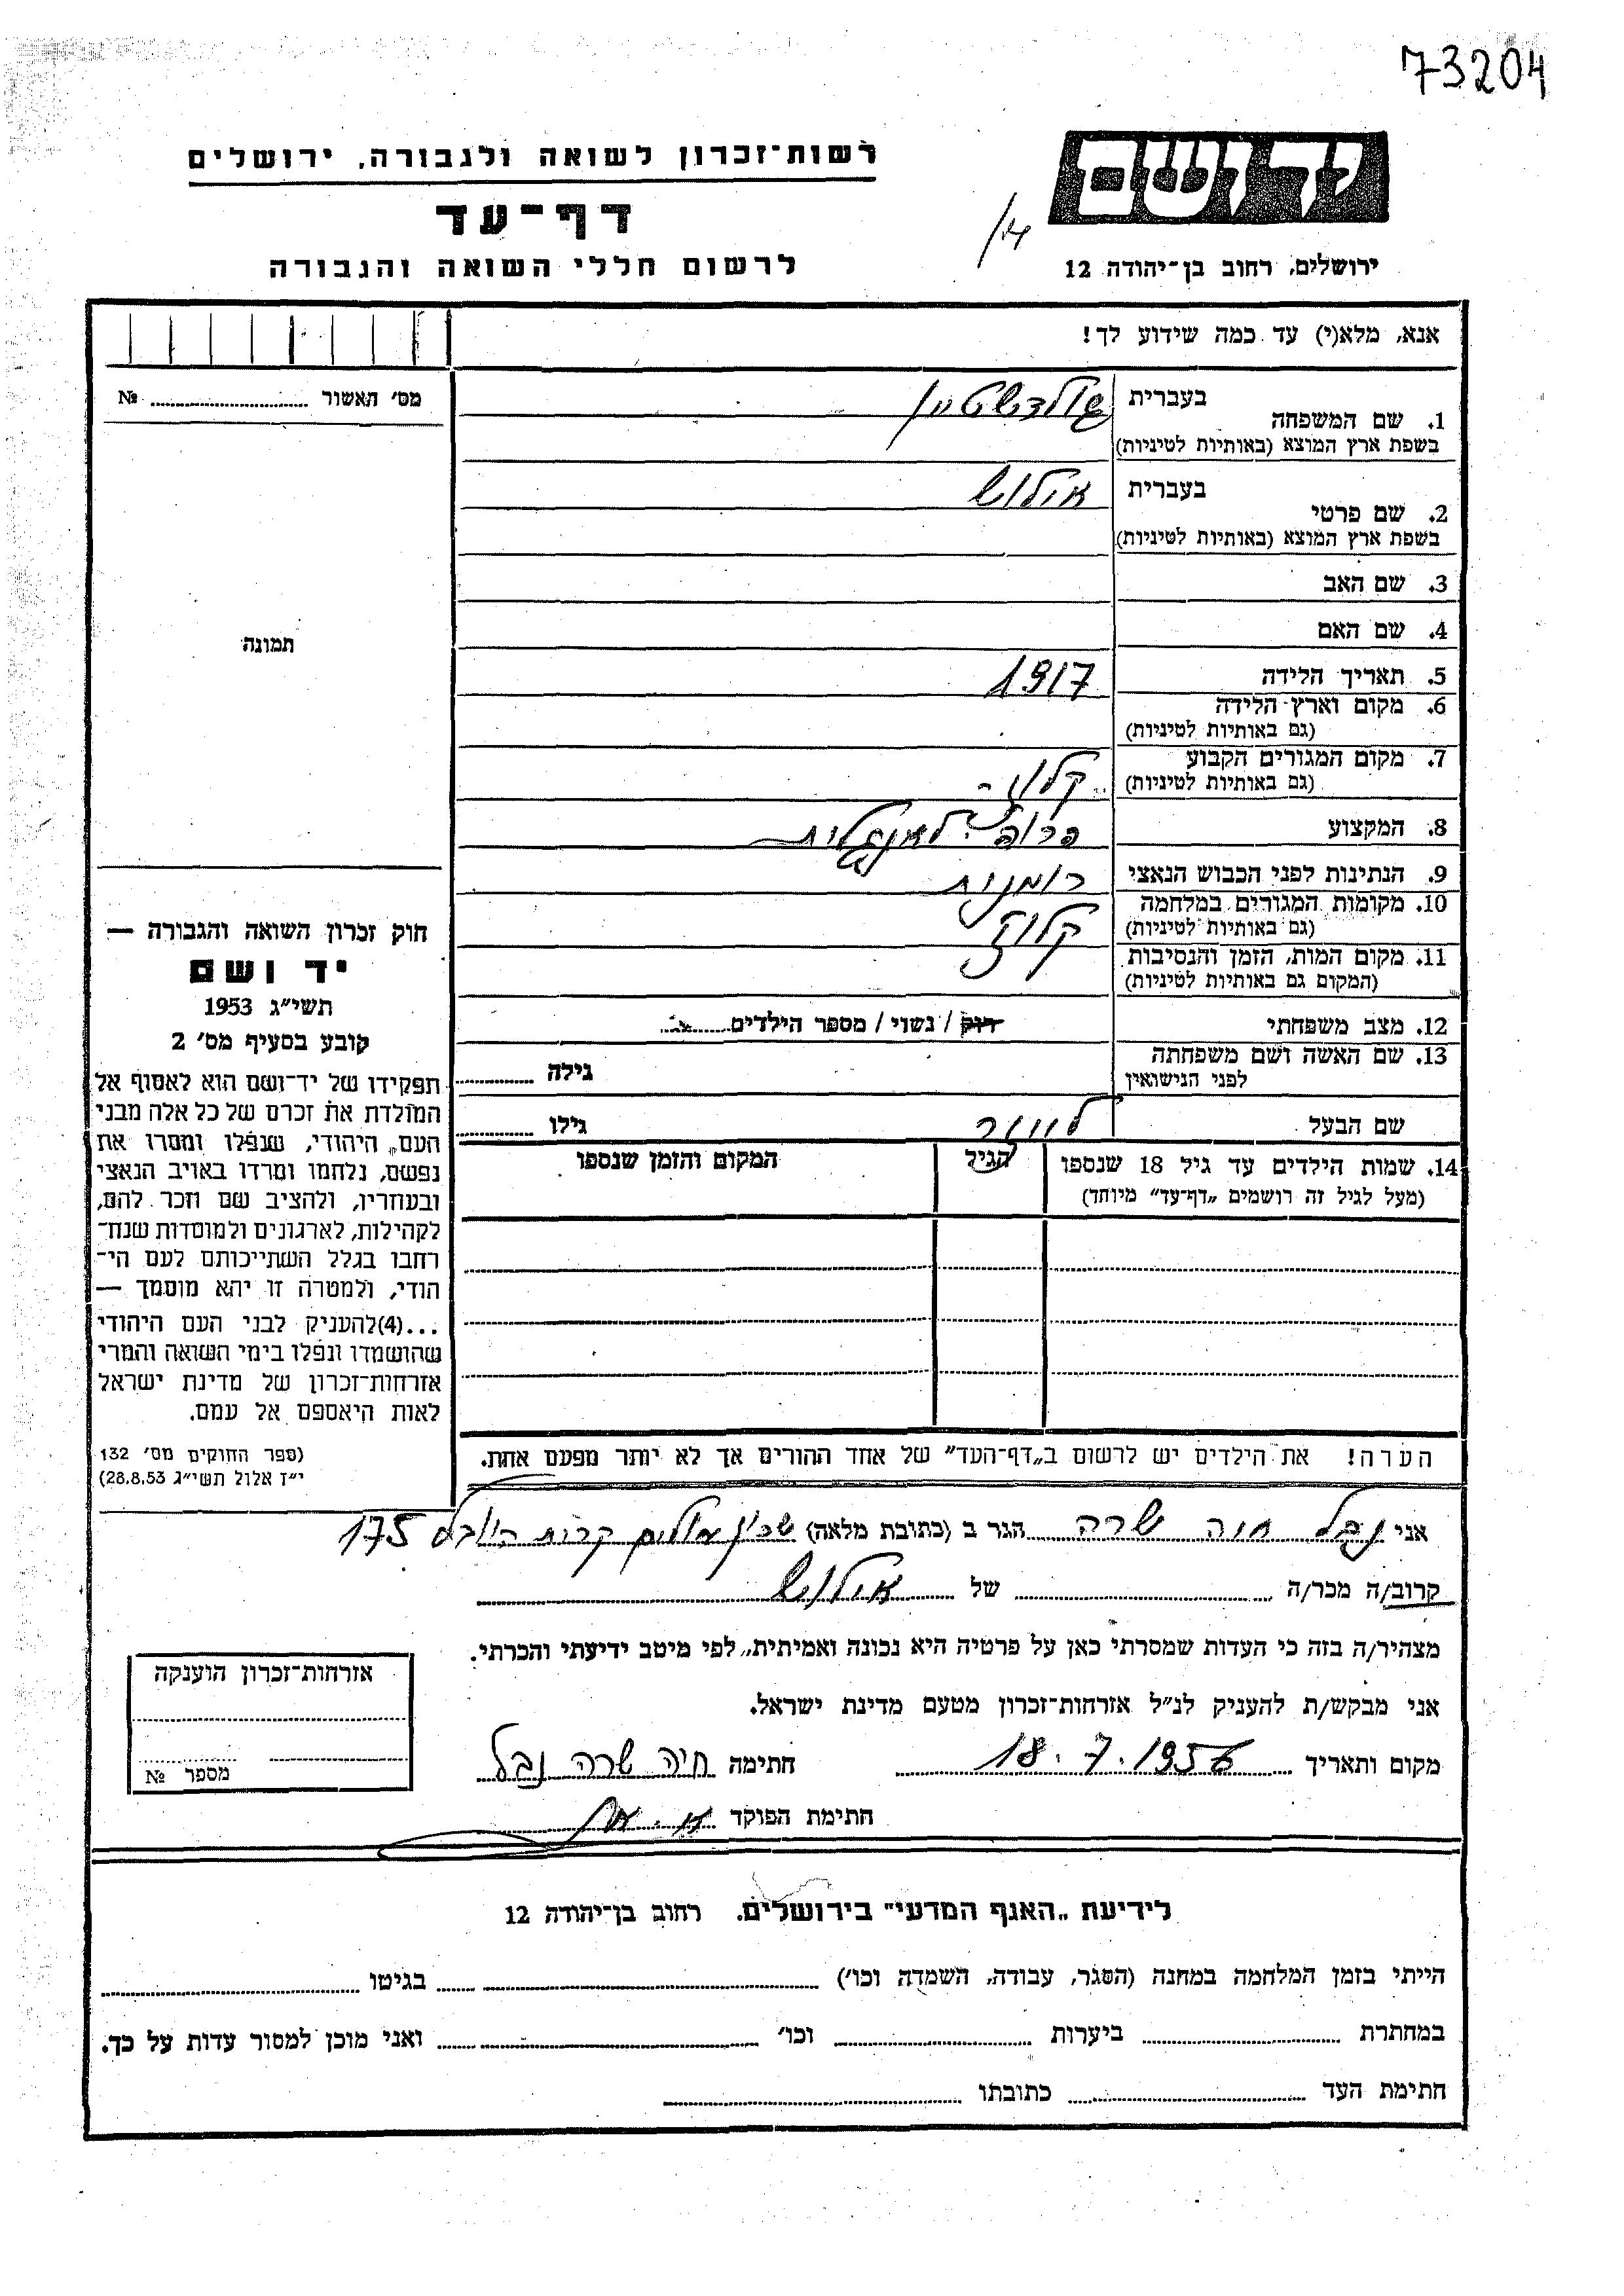 73204
רשות־זכרון לשואה ולגבורה, ירושלים
דף־עד
לרשום חללי השואה והגבורה
יד ושם
ירושלים, רחוב בן־יהודה 12
אנא, מלא(י) עד כמה שידוע לך!
מס' האשור № ........
1. שם המשפחה בעברית גולדשטיין
בשפת ארץ המוצא (באותיות לטיניות)
2. שם פרטי בעברית אילוש
בשפת ארץ המוצא (באותיות לטיניות)
3. שם האב
4. שם האם
תמונה
5. תאריך הלידה 1917
6. מקום וארץ הלידה
(גם באותיות לטיניות)
7. מקום המגורים הקבוע
(גם באותיות לטיניות)
8. המקצוע פרופ' לאנגלית
9. הנתינות לפני הכבוש הנאצי רומנית
10. מקומות המגורים במלחמה
(גם באותיות לטיניות) קלוז'
11. מקום המות, הזמן והנסיבות
(המקום גם באותיות לטיניות)
12. מצב משפחתי רווק / נשוי / מספר הילדים
13. שם האשה ושם משפחתה
לפני הנישואין גילה ........
שם הבעל גילו ........
14. שמות הילדים עד גיל 18 שנספו הגיל המקום והזמן שנספו
(מעל לגיל זה רושמים „דף־עד" מיוחד)
חוק זכרון השואה והגבורה —
יד ושם
תשי"ג 1953
קובע בסעיף מס' 2
תפקידו של יד־ושם הוא לאסוף אל
המולדת את זכרם של כל אלה מבני
העם היהודי, שנפלו ומסרו את
נפשם, נלחמו ומרדו באויב הנאצי
ובעוזריו, ולהציב שם וזכר להם,
לקהילות, לארגונים ולמוסדות שנח־
רבו בגלל השתייכותם לעם הי־
הודי, ולמטרה זו יהא מוסמך —
...(4)להעניק לבני העם היהודי
שהושמדו ונפלו בימי השואה והמרי
אזרחות־זכרון של מדינת ישראל
לאות היאספם אל עמם.
(ספר החוקים מס' 132
י"ז אלול תשי"ג 28.8.53)
הערה! את הילדים יש לרשום ב„דף־העד" של אחד ההורים אך לא יותר מפעם אחת.
אני נבל חיה שרה הגר ב (כתובת מלאה) שכון עולים קרית היובל 175
קרוב/ה מכר/ה ........ של אילוש
מצהיר/ה בזה כי העדות שמסרתי כאן על פרטיה היא נכונה ואמיתית, לפי מיטב ידיעתי והכרתי.
אני מבקש/ת להעניק לנ"ל אזרחות־זכרון מטעם מדינת ישראל.
מקום ותאריך 18.7.1956 חתימה חיה שרה נבל
חתימת הפוקד
אזרחות־זכרון הוענקה
מספר №
לידיעת „האגף המדעי" בירושלים. רחוב בן־יהודה 12
הייתי בזמן המלחמה במחנה (הסגר, עבודה, השמדה וכו') ........ בגיטו ........
במחתרת ........ ביערות ........ וכו' ........ ואני מוכן למסור עדות על כך.
חתימת העד ........ כתובתו ........